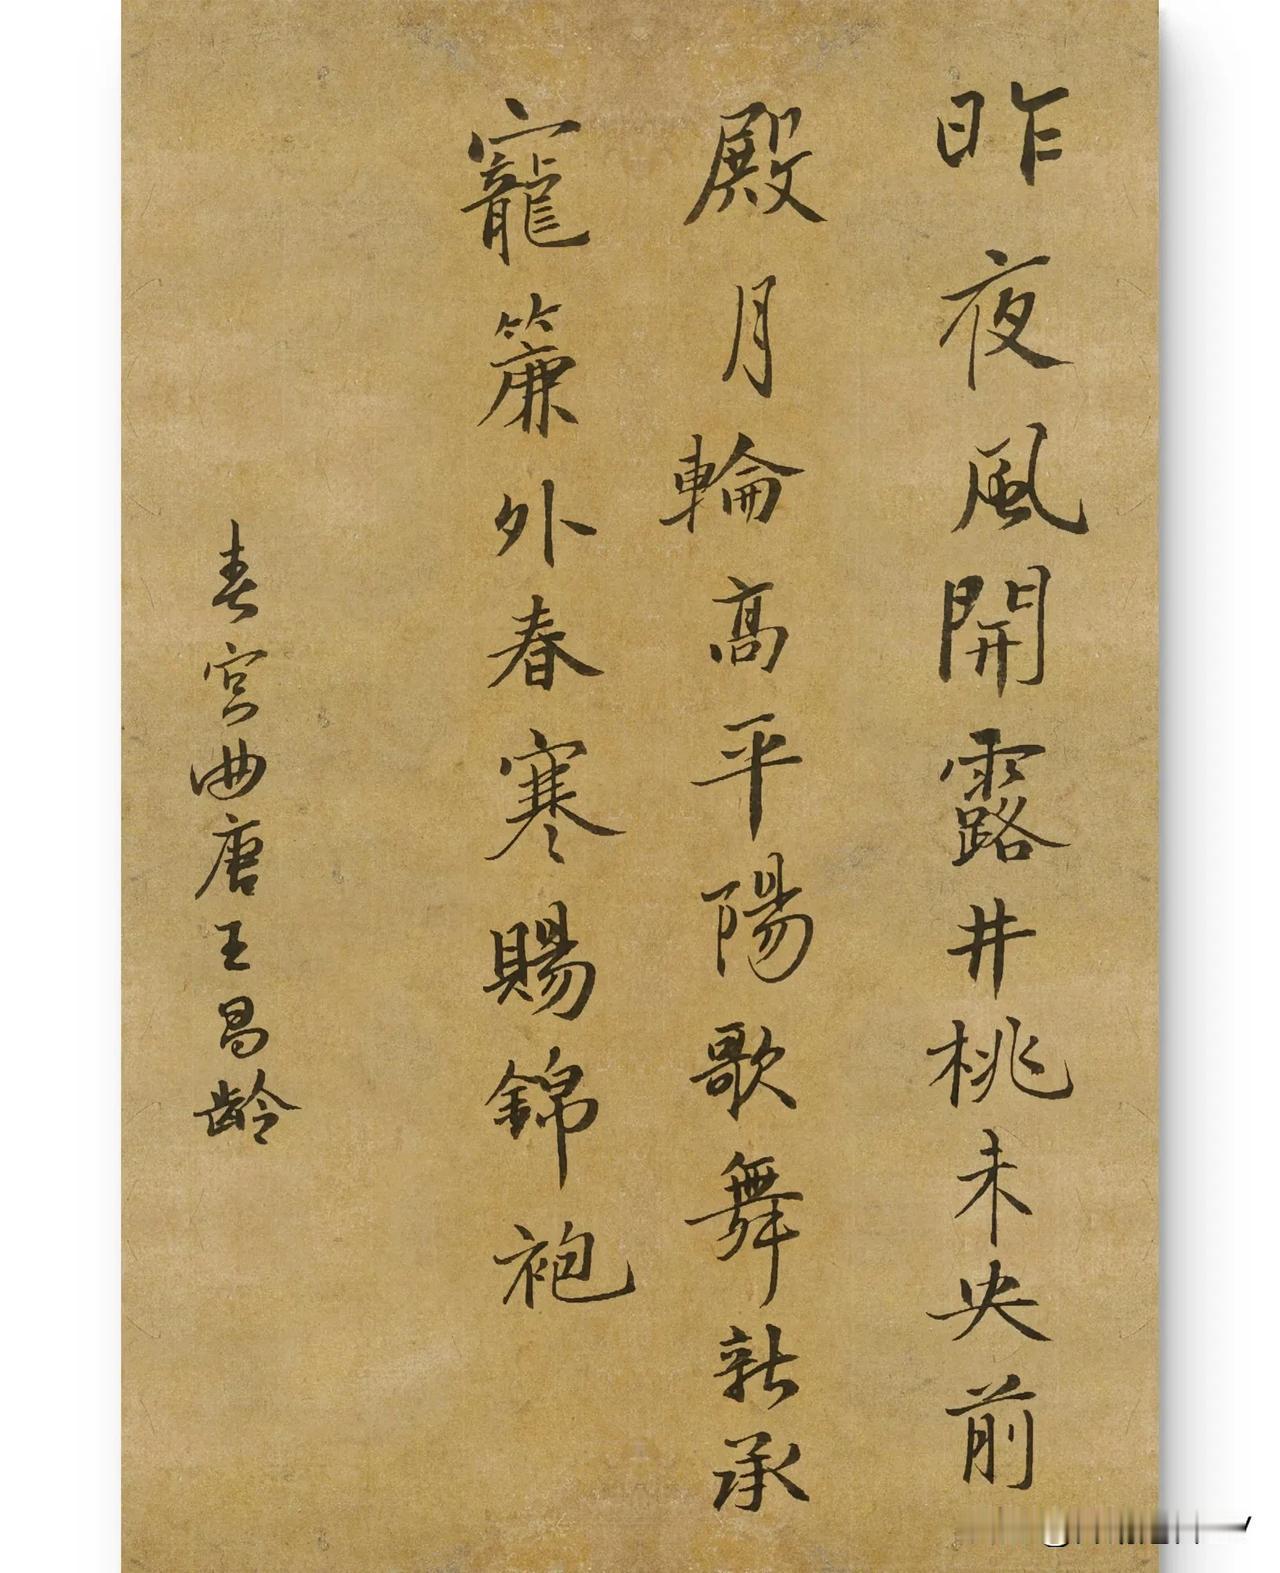 昨夜風開露井桃未央前
殿月輪高平陽歌舞新承
寵簾外春寒賜錦袍
春宮曲唐王昌齡